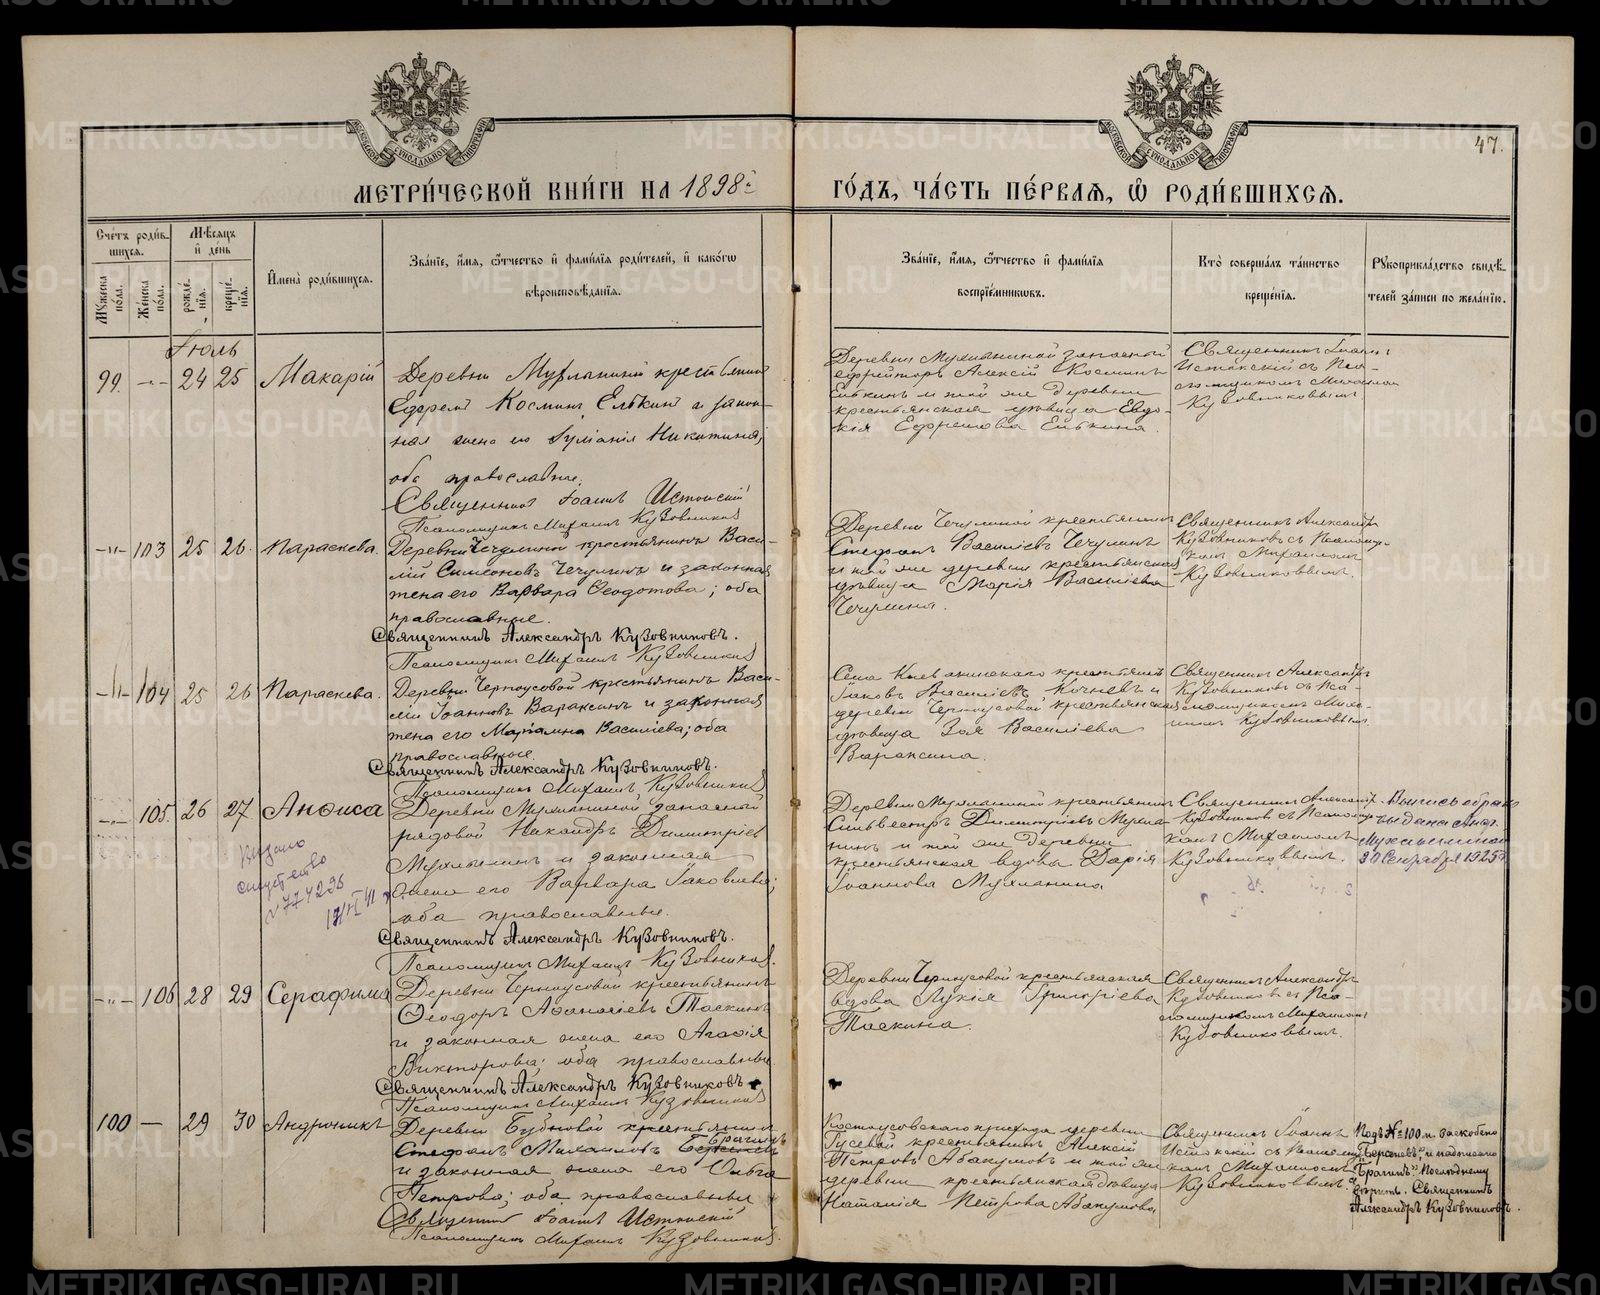 METRIKI.GASO-URAL.RU
47.
МОСКОВСКОЙ СѴНОДАЛЬНОЙ ТИПОГРАФІИ
МЕТРИ́ЧЕСКОЙ КНИ́ГИ НА 1898 г.
ГО́ДЪ, ЧА́СТЬ ПЕ́РВАЯ, Ѡ҆ РОДИ́ВШИХСЯ.
Сче́тъ роди́вшихся.
Мꙋ́жеска по́ла.
Же́нска по́ла.
Мѣ́сяцъ и де́нь
рожде́нія.
креще́нія.
И҆мена̀ роди́вшихся.
Зва́ніе, и҆́мя, ѻ҆́тчество и҆ фами́лія роди́телей, и҆ како́гѡ
вѣроисповѣ́данія.
Зва́ніе, и҆́мя, ѻ҆́тчество и҆ фами́лія
воспріе́мникѡвъ.
Кто̀ соверша́лъ та́инство
креще́нія.
Рꙋкоприкла́дство свидѣ́телей за́писи по жела́нію.
Іюль
99. -"- 24 25 Макарій
Деревни крестьянинъ
Ефремъ Косминъ Елькинъ и закон-
ная жена его Іуліанія Никитина;
оба православные.
Священникъ Іоаннъ Истокскій
Псаломщикъ Михаилъ Кузовниковъ
запасной
ефрейторъ Алексій Косминъ
Елькинъ и той же деревни
крестьянская дѣвица Евдо-
кія Ефремова Елькина.
Священникъ Іоаннъ
Истокскій съ Пса-
ломщикомъ Михаиломъ
Кузовниковымъ.
-"- 103 25 26. Параскева.
Деревни Чечулиной крестьянинъ Васи-
лій Симеоновъ Чечулинъ и законная
жена его Варвара Ѳеодотова; оба
православные.
Священникъ Александръ Кузовниковъ.
Псаломщикъ Михаилъ Кузовниковъ
Деревни Чечулиной крестьянинъ
Стефанъ Василіевъ Чечулинъ
и той же деревни крестьянская
дѣвица Марія Василіева
Чечулина.
Священникъ Александръ
Кузовниковъ съ Псаломщи-
комъ Михаиломъ
Кузовниковымъ.
-"- 104 25 26 Параскева.
Деревни Черноусовой крестьянинъ Васи-
лій Іоанновъ Вараксинъ и законная
жена его Маріамна Василіева; оба
православные.
Священникъ Александръ Кузовниковъ.
Псаломщикъ Михаилъ Кузовниковъ
Села крестьянинъ
Іаковъ Василіевъ Кочневъ и
деревни Черноусовой крестьянская
дѣвица Зоя Василіева
Вараксина.
Священникъ Александръ
Кузовниковъ съ Пса-
ломщикомъ Миха-
иломъ Кузовниковымъ.
-"- 105. 26 27 Анѳиса
Деревни Мухлыниной запасной
рядовой Никандръ Димитріевъ
Мухлынинъ и законная
жена его Варвара Іаковлева;
оба православные.
Священникъ Александръ Кузовниковъ.
Псаломщикъ Михаилъ Кузовниковъ.
Деревни Мухлыниной крестьянинъ
Сильвестръ Димитріевъ Мухлы-
нинъ и той же деревни
крестьянская вдова Дарія
Іоаннова Мухлынина
Священникъ Александръ
Кузовниковъ съ Псаломщи-
комъ Михаиломъ
Кузовниковымъ.
Выпись о бракѣ
выдана
Мухлыниной
30 Сентября 1925 г.
Выдано
№ 774296
-"- 106 28 29 Серафима
Деревни Черноусовой крестьянинъ
Ѳеодоръ Аѳанасіевъ Таскинъ
и законная жена его Агаѳія
Викторова; оба православные.
Священникъ Александръ Кузовниковъ
Псаломщикъ Михаилъ Кузовниковъ
Деревни Черноусовой крестьянская
вдова Лукія Григоріева
Таскина.
Священникъ Александръ
Кузовниковъ съ Пса-
ломщикомъ Михаиломъ
Кузовниковымъ.
100 — 29 30 Андроникъ
Деревни Бубновой крестьянинъ
Стефанъ Михаиловъ Брагинъ
и законная жена его Ольга
Петрова; оба православные
Священникъ Іоаннъ Истокскій
Псаломщикъ Михаилъ Кузовниковъ.
прихода деревни
Гусевой крестьянинъ Алексій
Петровъ Абакумовъ и той же
деревни крестьянская дѣвица
Наталія Петрова Абакумова
Священникъ Іоаннъ
Истокскій съ Псаломщи-
комъ Михаиломъ
Кузовниковымъ.
Подъ № 100 м. заскоблено
и надписано
"Брагинъ". Послѣднему
вѣрить. Священникъ
Александръ Кузовниковъ.